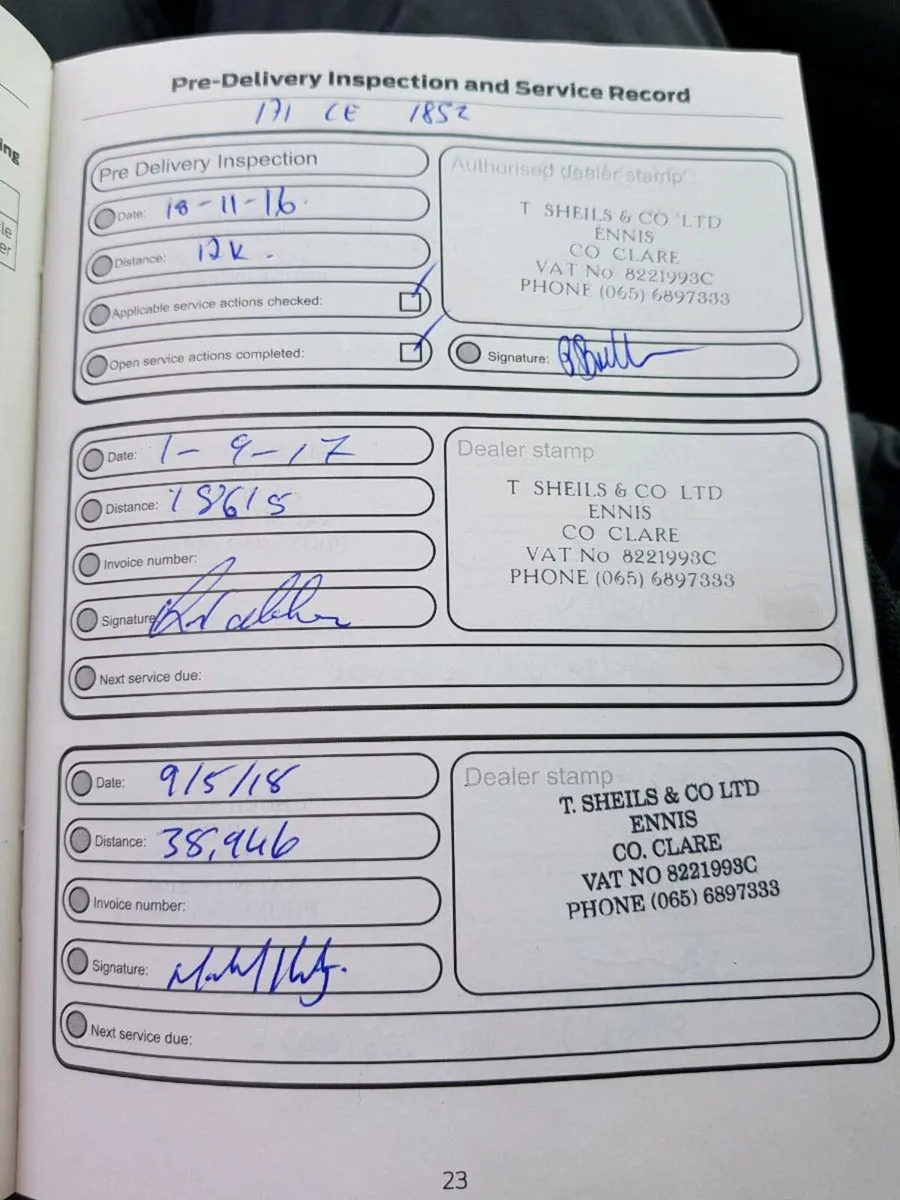 ing
le
er
Pre-Delivery Inspection and Service Record
171 CE 1852
Pre Delivery Inspection
Date: 18-11-16.
Distance: 12K.
Applicable service actions checked:
Open service actions completed:
Authorised dealer stamp
T SHEILS & CO LTD
ENNIS
CO CLARE
VAT No 8221993C
PHONE (065) 6897333
Signature:
Date: 1-9-17
Distance: 18615
Invoice number:
Signature
Next service due:
Dealer stamp
T SHEILS & CO LTD
ENNIS
CO CLARE
VAT No 8221993C
PHONE (065) 6897333
Date: 9/5/18
Distance: 38,946
Invoice number:
Signature:
Next service due:
Dealer stamp
T. SHEILS & CO LTD
ENNIS
CO. CLARE
VAT NO 8221993C
PHONE (065) 6897333
23